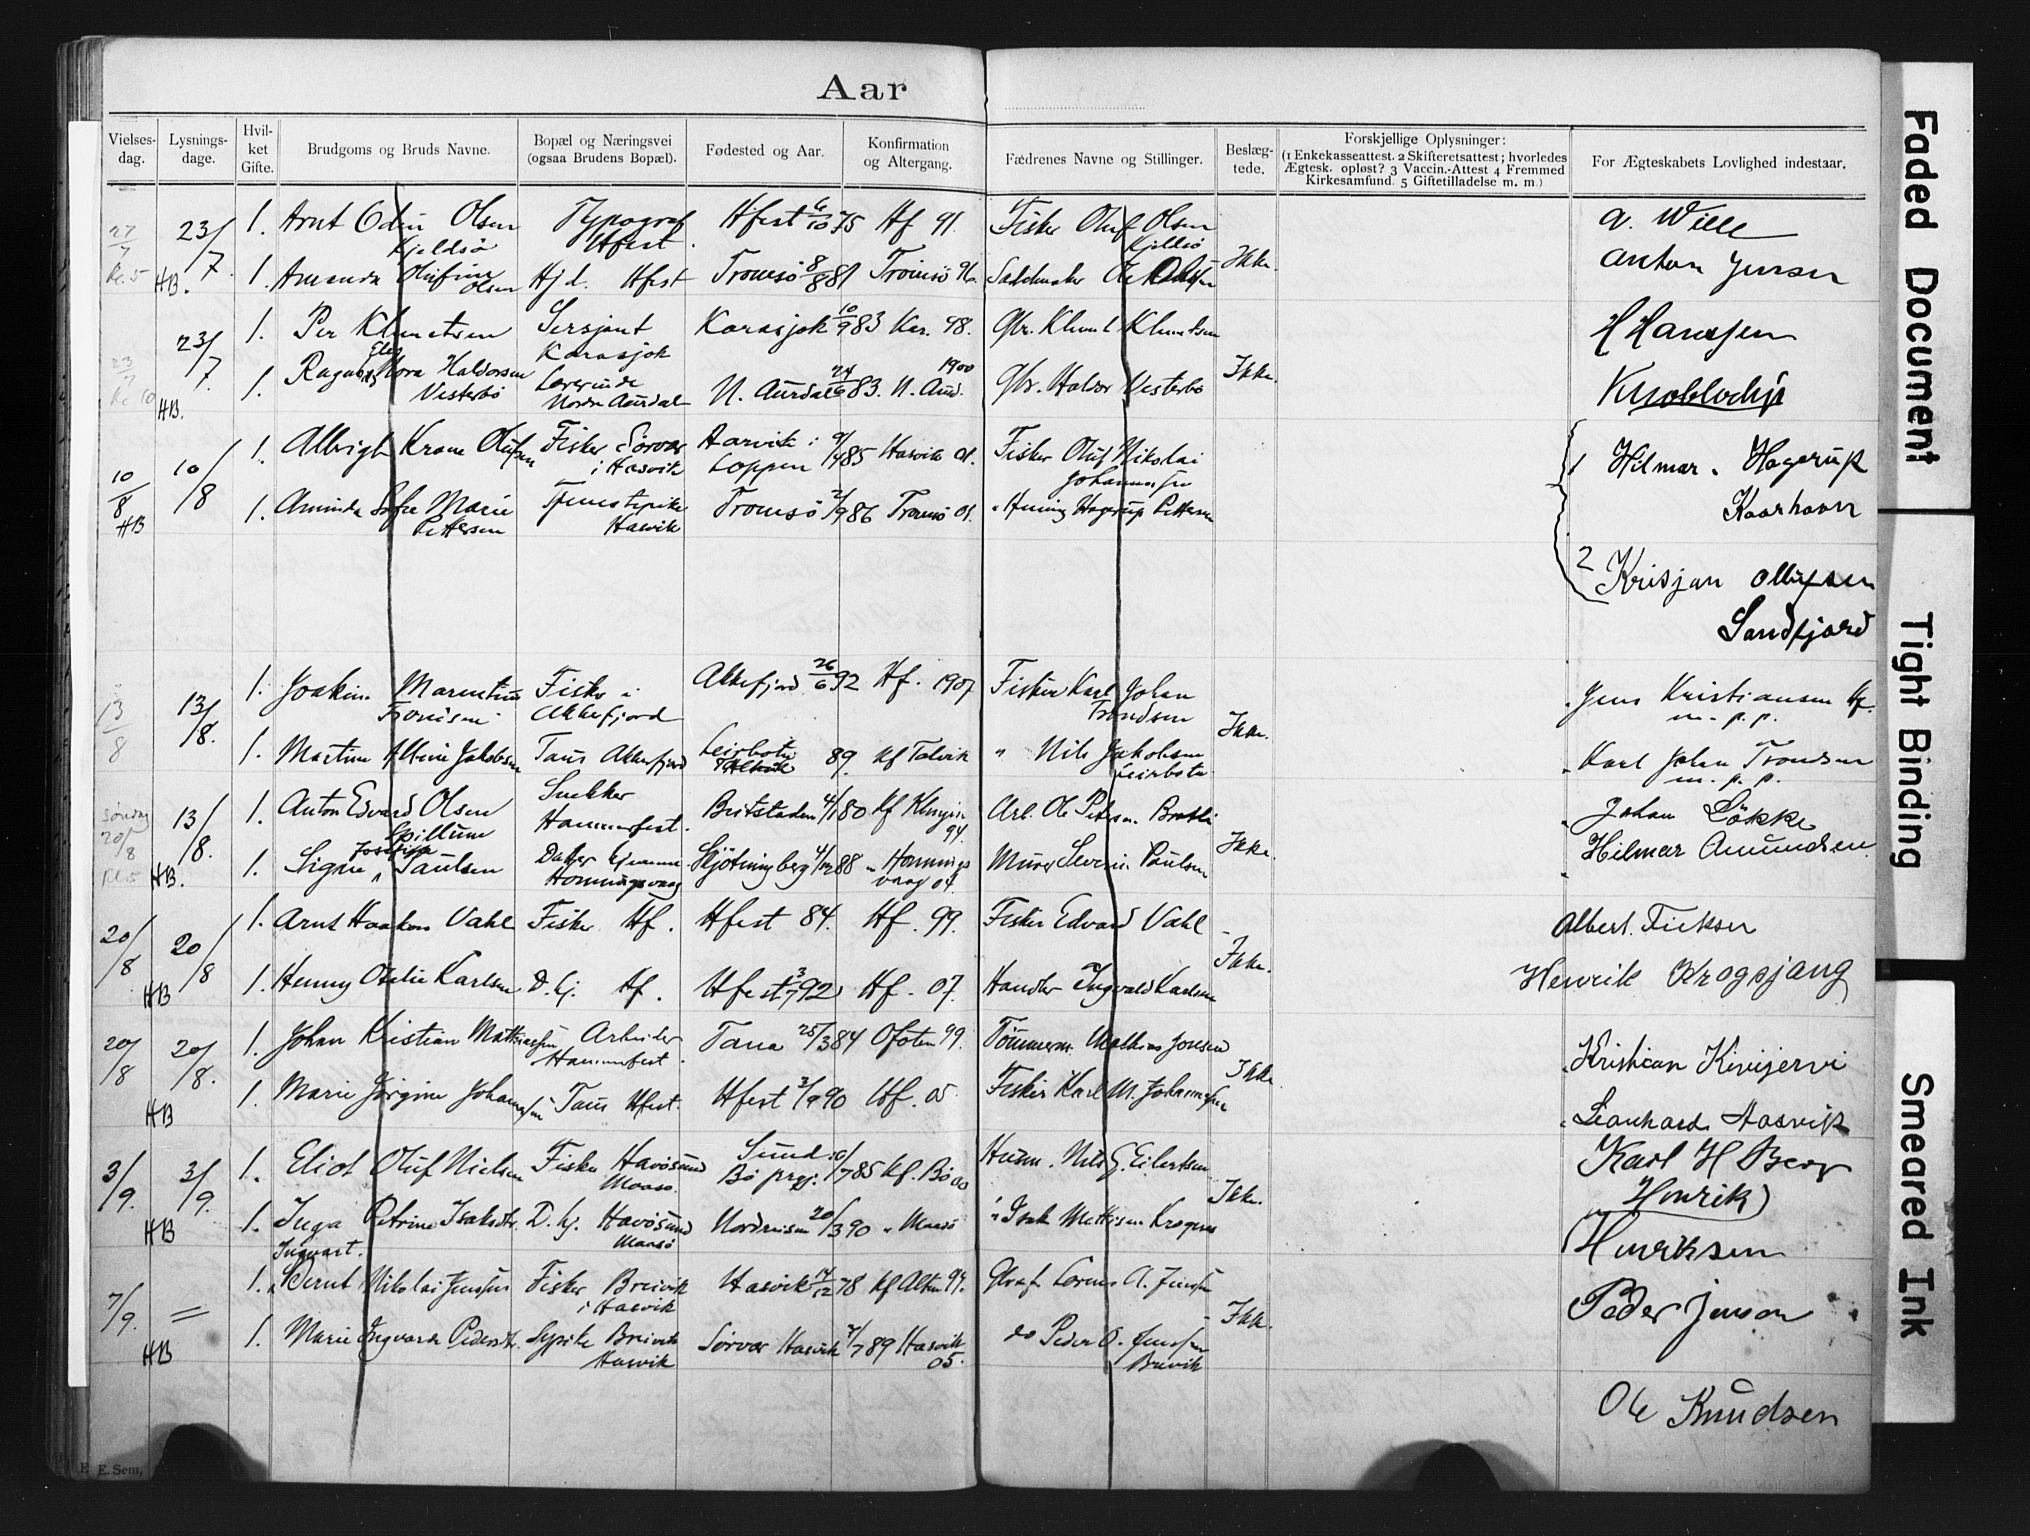 Aar
Vielses-dag.
Lysnings-dage.
Hvil-ket Gifte.
Brudgoms og Bruds Navne.
Bopæl og Næringsvei (ogsaa Brudens Bopæl).
Fødested og Aar.
Konfirmation og Altergang.
Fædrenes Navne og Stillinger.
Beslæg-tede.
Forskjellige Oplysninger:
(1 Enkekasseattest. 2 Skifteretsattest; hvorledes Ægtesk. opløst? 3 Vaccin.-Attest 4 Fremmed Kirkesamfund. 5 Giftetilladelse m. m.)
For Ægteskabets Lovlighed indestaar.
27/7 kl. 5 23/7. 1. Arnt Odin Olsen Kjeldsö Typograf Hfest. Hfest 6/10 75 Hf 91. Fisker Oluf Olsen Kjeldsö Ikke. A. Wille
HB. 1. Amanda Olufine Olsen Hj d. Hfest Tromsö 8/8 81 Tromsö 96. Anton Jensen
23/7 kl 10 23/7. 1. Per Klemetsen Sersjant Karasjok Karasjok 10/9 83 Kar. 98. Gbr. Klemet Klemetsen Ikke. H Hanssen
HB. 1. Nora Haldorsen Vesterbö Lærerinde Nordre Aurdal N. Aurdal 24/6 83. N. Aurd. 1900 Gbr. Haldor Vesterbö
10/8 10/8 1. Albrigt Krane Olufsen Fisker Sörvær i Hasvik Aarvik i Loppen 9/4 85 Hasvik 01. Fisker Oluf Nikolai Johannesen 1 Hilmar. Hagerup Kaarhavn
HB 1. Aminda Sofie Marie Pettersen Tjenestepike Hasvik Tromsö 2/9 86 Tromsö 01. " Hening Hagerup Pettersen
2 Krisjan Ollufsen Sandfjord
13/8 13/8. 1. Joakim Marentius Trondsen Fisker i Akkefjord Akkefjord 26/6 92 Hf. 1907 Fisker Karl Johan Trondsen Ikke. Jens Kristiansen Hf. m. p. p.
1. Martine Albine Jakobsen Taus Akkefjord Leirbotn Talvik 89. kf Talvik " Nils Jakobsen Leirbotn Karl Johan Trondsen m. p. p.
Söndag 20/8 kl. 5 13/8. 1. Anton Edvard Olsen Spillum Snekker Hammerfest. Beitstaden 4/1 80 kf Klinga 94. Arb. Ole Petersen Bratli Ikke. Johan Løkke
HB. 1. Signe Josefine Paulsen Datter hjemme Honningsvaag Skjötningberg 4/12 88 " Honningsvaag 04. Murer Severin Paulsen Hilmar Amundsen
20/8 20/8 1. Arnt Haakon Vahl Fisker Hf. Hfest 84. Hf. 99. Fisker Edvard Vahl Ikke. Albert.
HB 1. Henny Otelie Karlsen D. hj. Hf. Hfest 3/7 92 Hf. 07. Handler Ingvald Karlsen Henrik Krogsjang
20/8 20/8. 1. Johan Kristian Mathiassen Arbeider Hammerfest. Tana 25/3 84 Ofoten 99. Tömmerm. Mathias Jonsen Ikke Kristian Kivijervi
HB 1. Marie Jörgine Johannessen Taus Hfest. Hfest 3/9 90 Hf. 05 Fisker Karl M. Johannessen Leonhard Aasvik
3/9. 3/9. 1. Eliot Oluf Nielsen Fisker Havösund Maasö. Sund Bö prgj. 10/7 85 kf. Bö 00 Husm. Nils G. Eilertsen Ikke. Karl H Berg
HB 1. Inga Petrine Isaksdtr. D. hj. Havösund Maasö Nordreisen 20/3 90 " Maasö " Isak Mathisen Krogenes (Henrik) Henriksen
7/9. = 1. Ingvart. Bernt Nikolai Jenssen Fisker Breivik i Hasvik Hasvik 14/12 78 kf Alten 94. Lorens A. Jenssen Ikk. Peder Jenson
HB 1. Marie Ingvarda Pedersdtr. Sypike Breivik Hasvik Sörvær Hasvik 7/7 89 Hasvik 05. do Peder O. Jenssen Breivik
Ole Knudsen
E. Sem,
Faded Document
Tight Binding
Smeared Ink